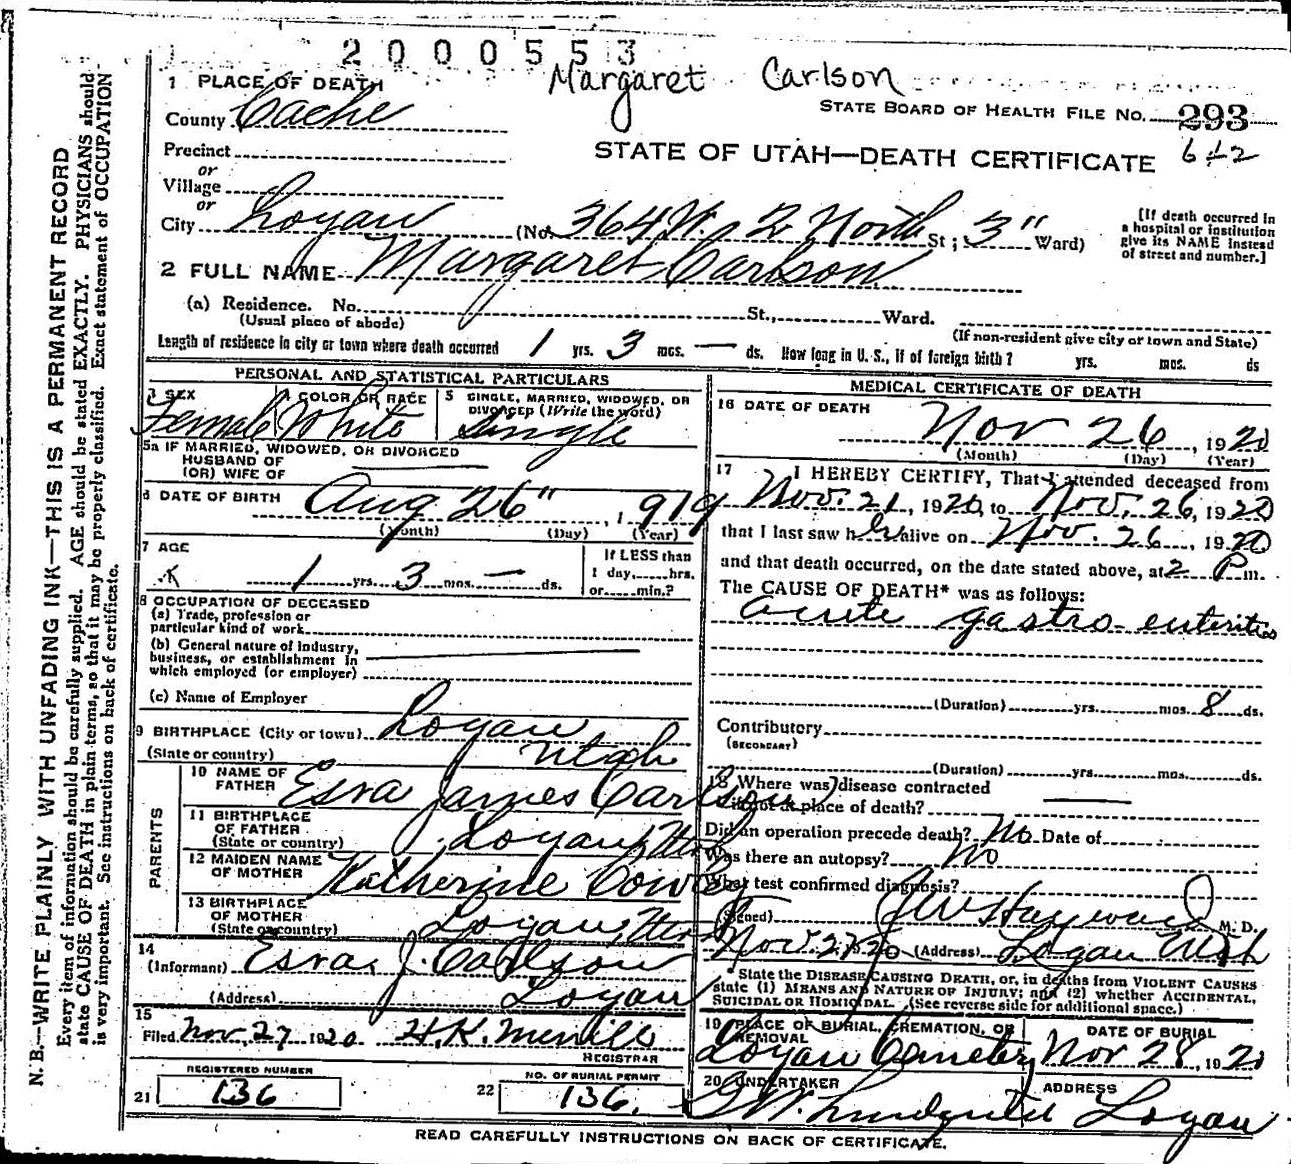 2000553
Margaret Carlson
1 PLACE OF DEATH
STATE BOARD OF HEALTH FILE No. 293
County Cache
6+2
Precinct
STATE OF UTAH—DEATH CERTIFICATE
or
Village
or
City Logan (No. 364 W. 2 North St; 3" Ward)
[If death occurred in
a hospital or institution
give its NAME instead
of street and number.]
2 FULL NAME Margaret Carlson
(a) Residence. No. St., Ward.
(Usual place of abode) (If non-resident give city or town and State)
Length of residence in city or town where death occurred 1 yrs. 3 mos. — ds. How long in U. S., if of foreign birth? yrs. mos. ds
PERSONAL AND STATISTICAL PARTICULARS
3 SEX Female
4 COLOR OR RACE White
5 SINGLE, MARRIED, WIDOWED, OR
DIVORCED (Write the word)
Single
5a IF MARRIED, WIDOWED, OR DIVORCED
HUSBAND OF
(OR) WIFE OF
6 DATE OF BIRTH Aug 26", 1919
(Month) (Day) (Year)
7 AGE
1 yrs. 3 mos. — ds.
If LESS than
1 day, hrs.
or min.?
8 OCCUPATION OF DECEASED
(a) Trade, profession or
particular kind of work
(b) General nature of Industry,
business, or establishment in
which employed (or employer)
(c) Name of Employer
9 BIRTHPLACE (City or town) Logan
(State or country) Utah
PARENTS
10 NAME OF
FATHER Esra James Carlson
11 BIRTHPLACE
OF FATHER
(State or country) Logan, Utah
12 MAIDEN NAME
OF MOTHER Katherine
13 BIRTHPLACE
OF MOTHER
(State or country) Logan, Utah
14
(Informant) Esra J. Carlson
(Address) Logan
15
Filed Nov. 27 1920 H. K. Merrill
REGISTRAR
REGISTERED NUMBER
21 136
NO. OF BURIAL PERMIT
22 136.
MEDICAL CERTIFICATE OF DEATH
16 DATE OF DEATH
Nov 26, 1920
(Month) (Day) (Year)
17 I HEREBY CERTIFY, That I attended deceased from
Nov. 21, 1920, to Nov. 26, 1920
that I last saw her alive on Nov. 26, 1920
and that death occurred, on the date stated above, at 2 P m.
The CAUSE OF DEATH* was as follows:
acute gastro enteritis
(Duration) yrs. mos. 8 ds.
Contributory
(SECONDARY)
(Duration) yrs. mos. ds.
18 Where was disease contracted
if not at place of death?
Did an operation precede death? No Date of
Was there an autopsy? No
What test confirmed diagnosis?
(Signed) J W Hayward M. D.
Nov. 27 20 (Address) Logan Utah
State the DISEASE CAUSING DEATH, or, in deaths from VIOLENT CAUSES
state (1) MEANS AND NATURE OF INJURY; and (2) whether ACCIDENTAL,
SUICIDAL OR HOMICIDAL. (See reverse side for additional space.)
19 PLACE OF BURIAL, CREMATION, OR
REMOVAL
Logan Cemetery
DATE OF BURIAL
Nov 28, 1920
20 UNDERTAKER
G W. Lundquist
ADDRESS
Logan
READ CAREFULLY INSTRUCTIONS ON BACK OF CERTIFICATE.
N. B.—WRITE PLAINLY WITH UNFADING INK—THIS IS A PERMANENT RECORD
Every item of information should be carefully supplied. AGE should be stated EXACTLY. PHYSICIANS should
state CAUSE OF DEATH in plain terms, so that it may be properly classified. Exact statement of OCCUPATION
is very important. See instructions on back of certificate.